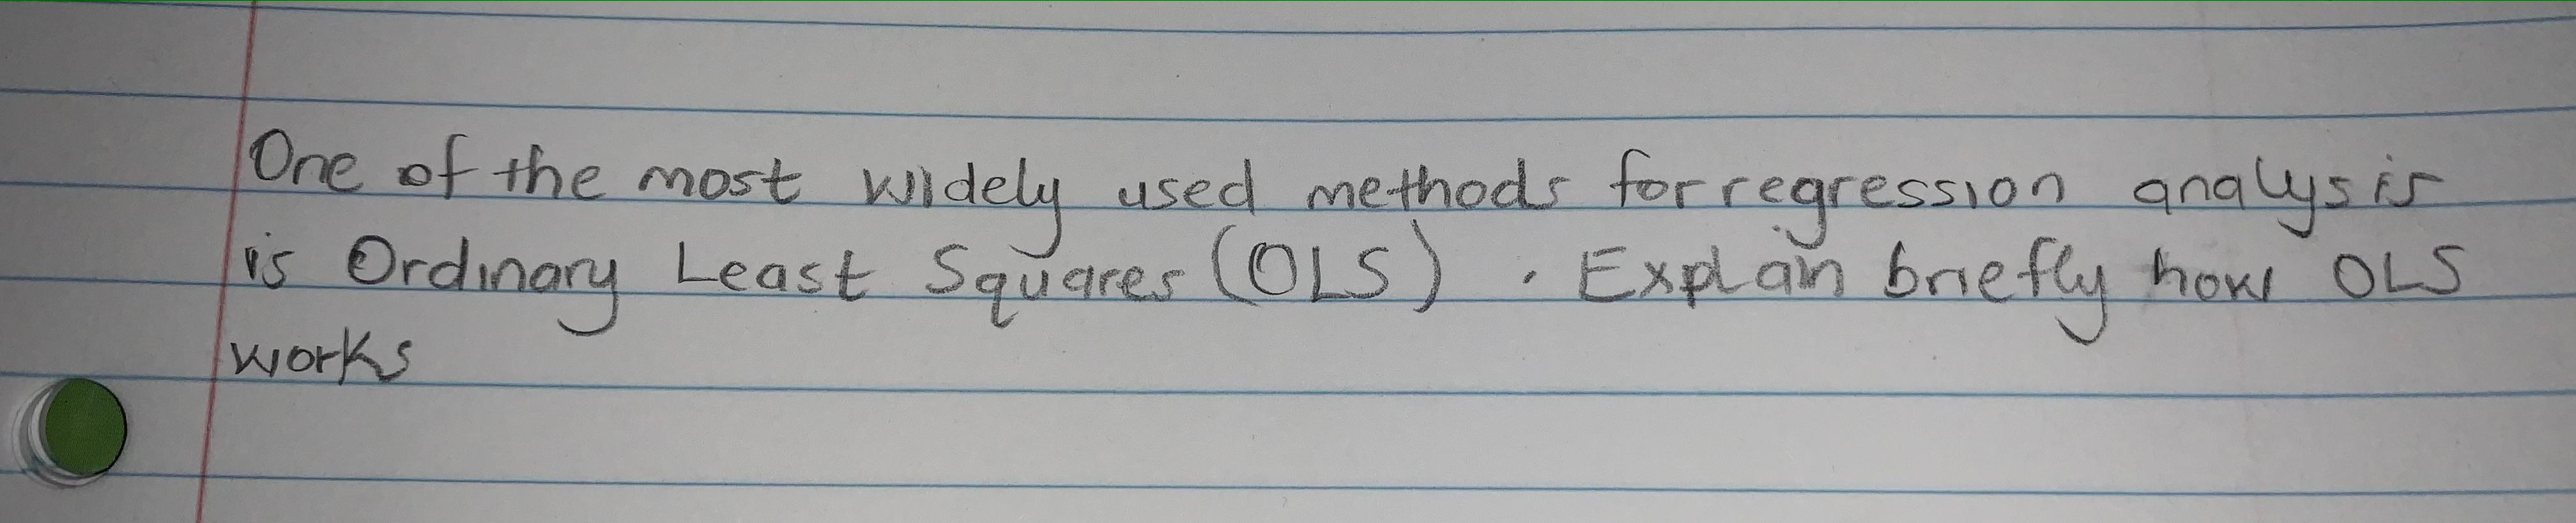 One of the most widely used methods for regression analysis
is Ordinary Least Squares (OLS) . Explain briefly how OLS
works